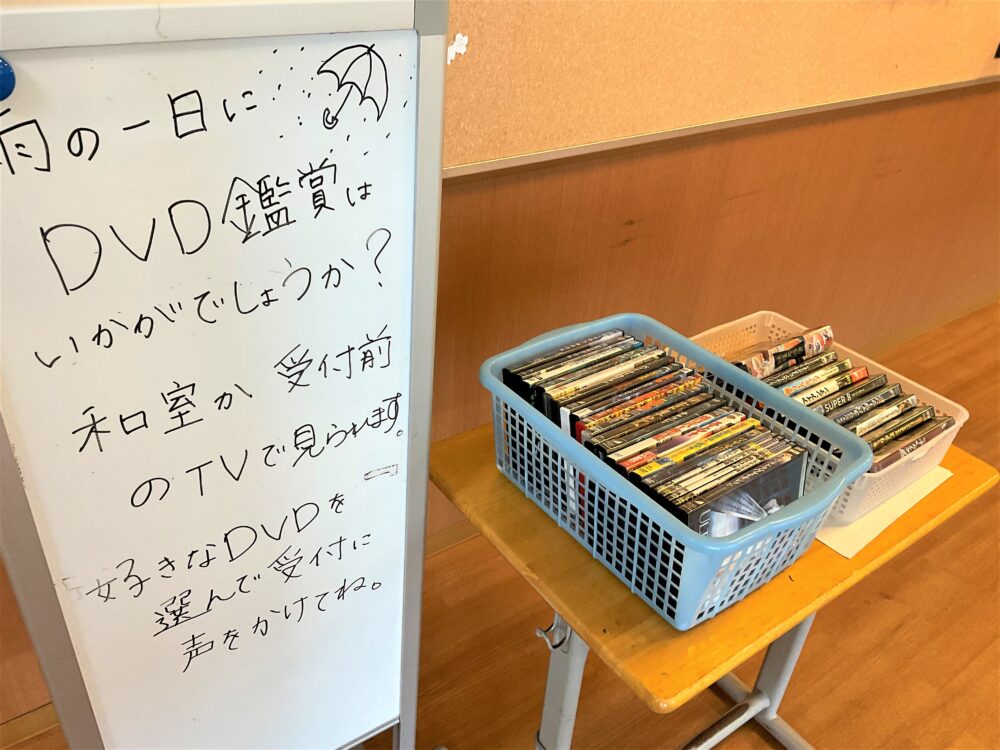 雨の一日に
DVD鑑賞は
いかがでしょうか？
和室か 受付前
のTVで見られます。
好きなDVDを
選んで受付に
声をかけてね。
SUPER 8